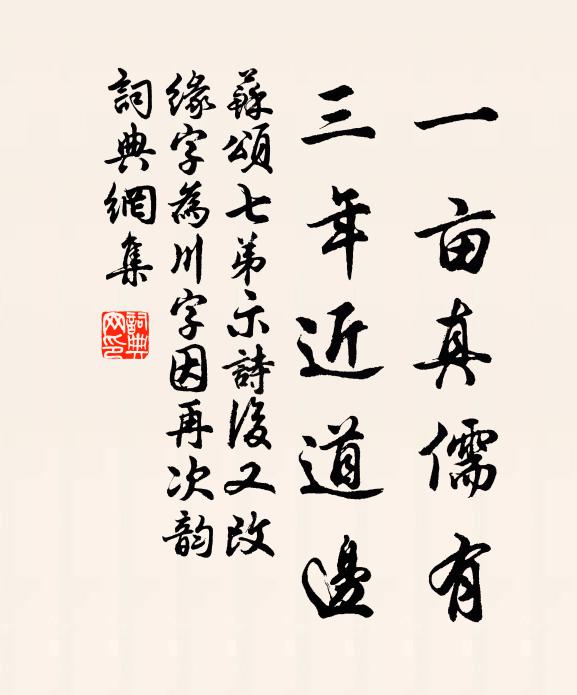 一亩真儒有
三年近道邊
蘇頌七弟示詩後又改
緣字為川字因再次韵
詞典網集
詞典网印